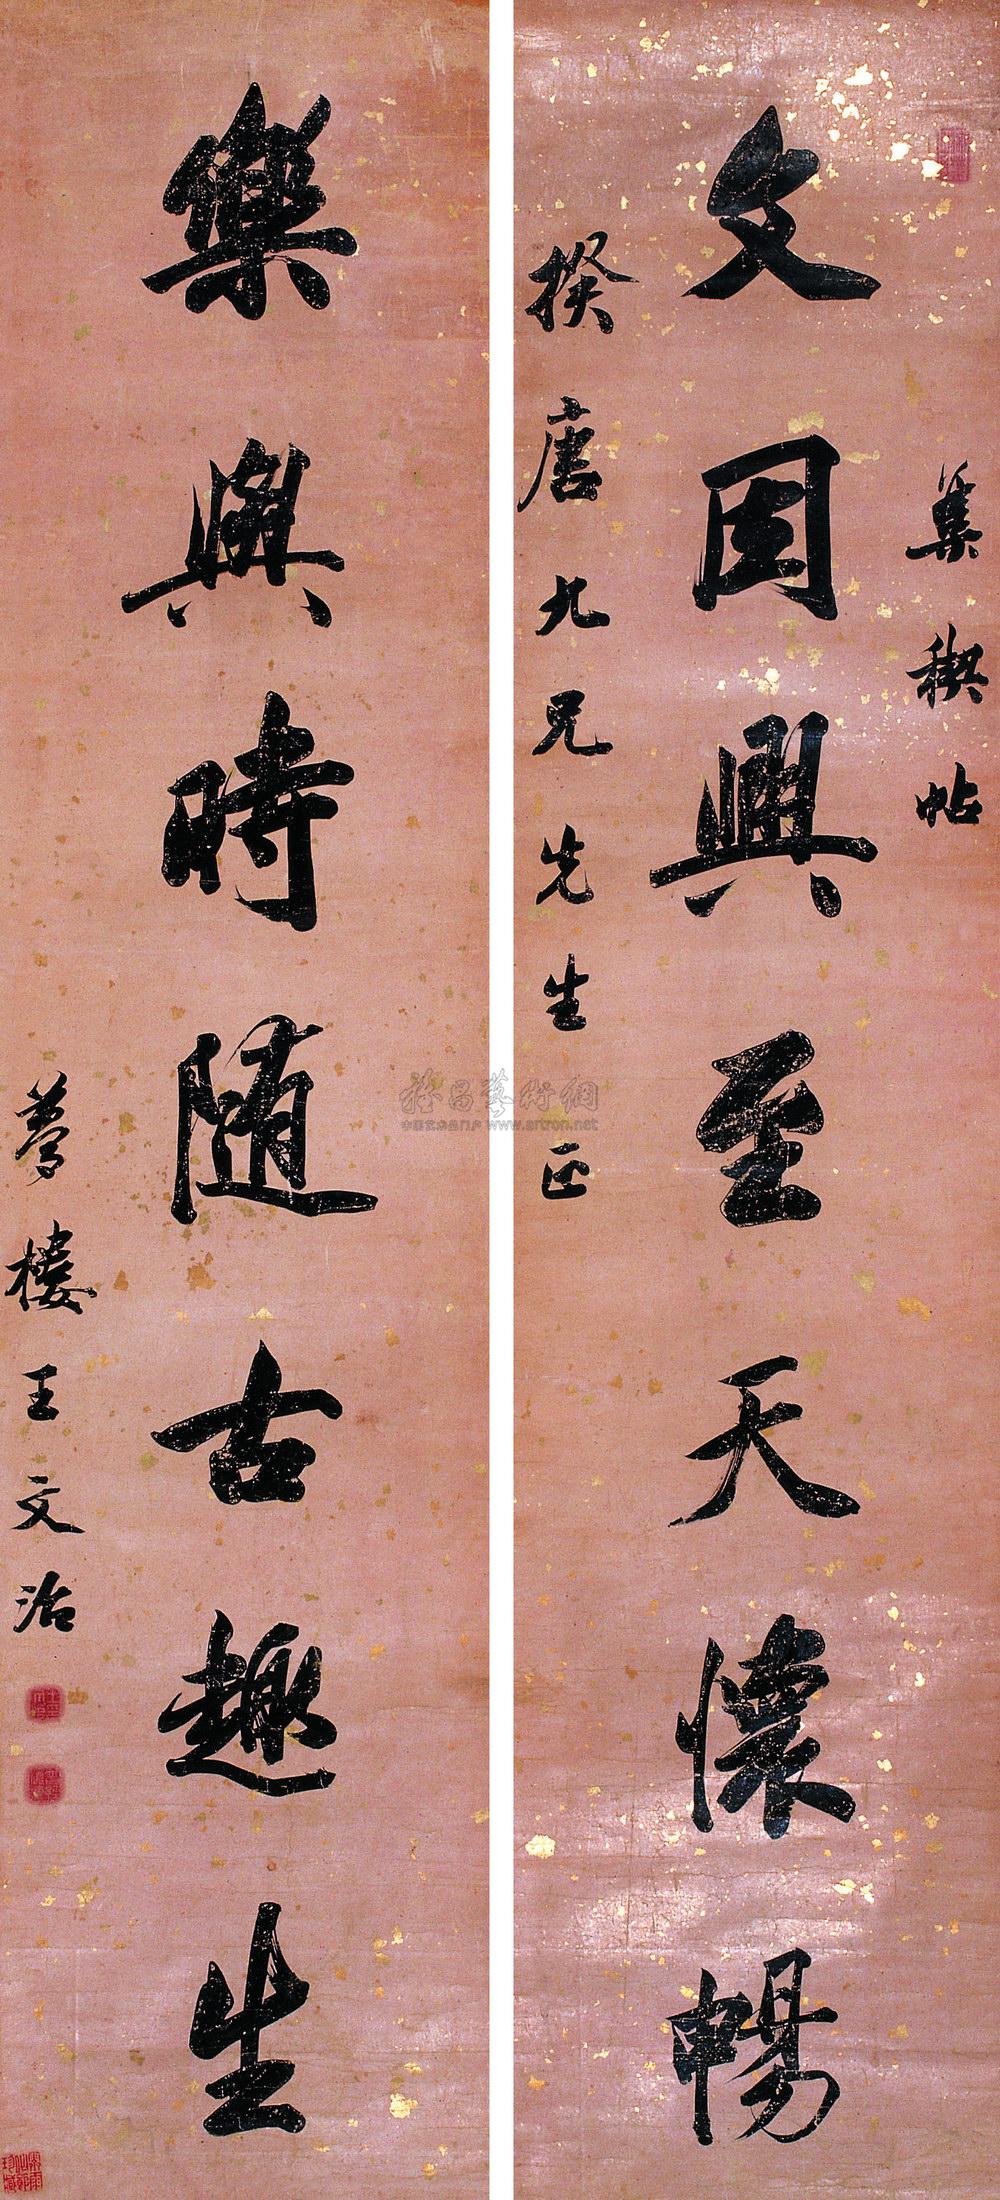 集禊帖
文因興至天懷暢
揆唐九兄先生正
樂與時随古趣生
夢樓王文治
雅昌藝術網
中国艺术品门户 www.artron.net